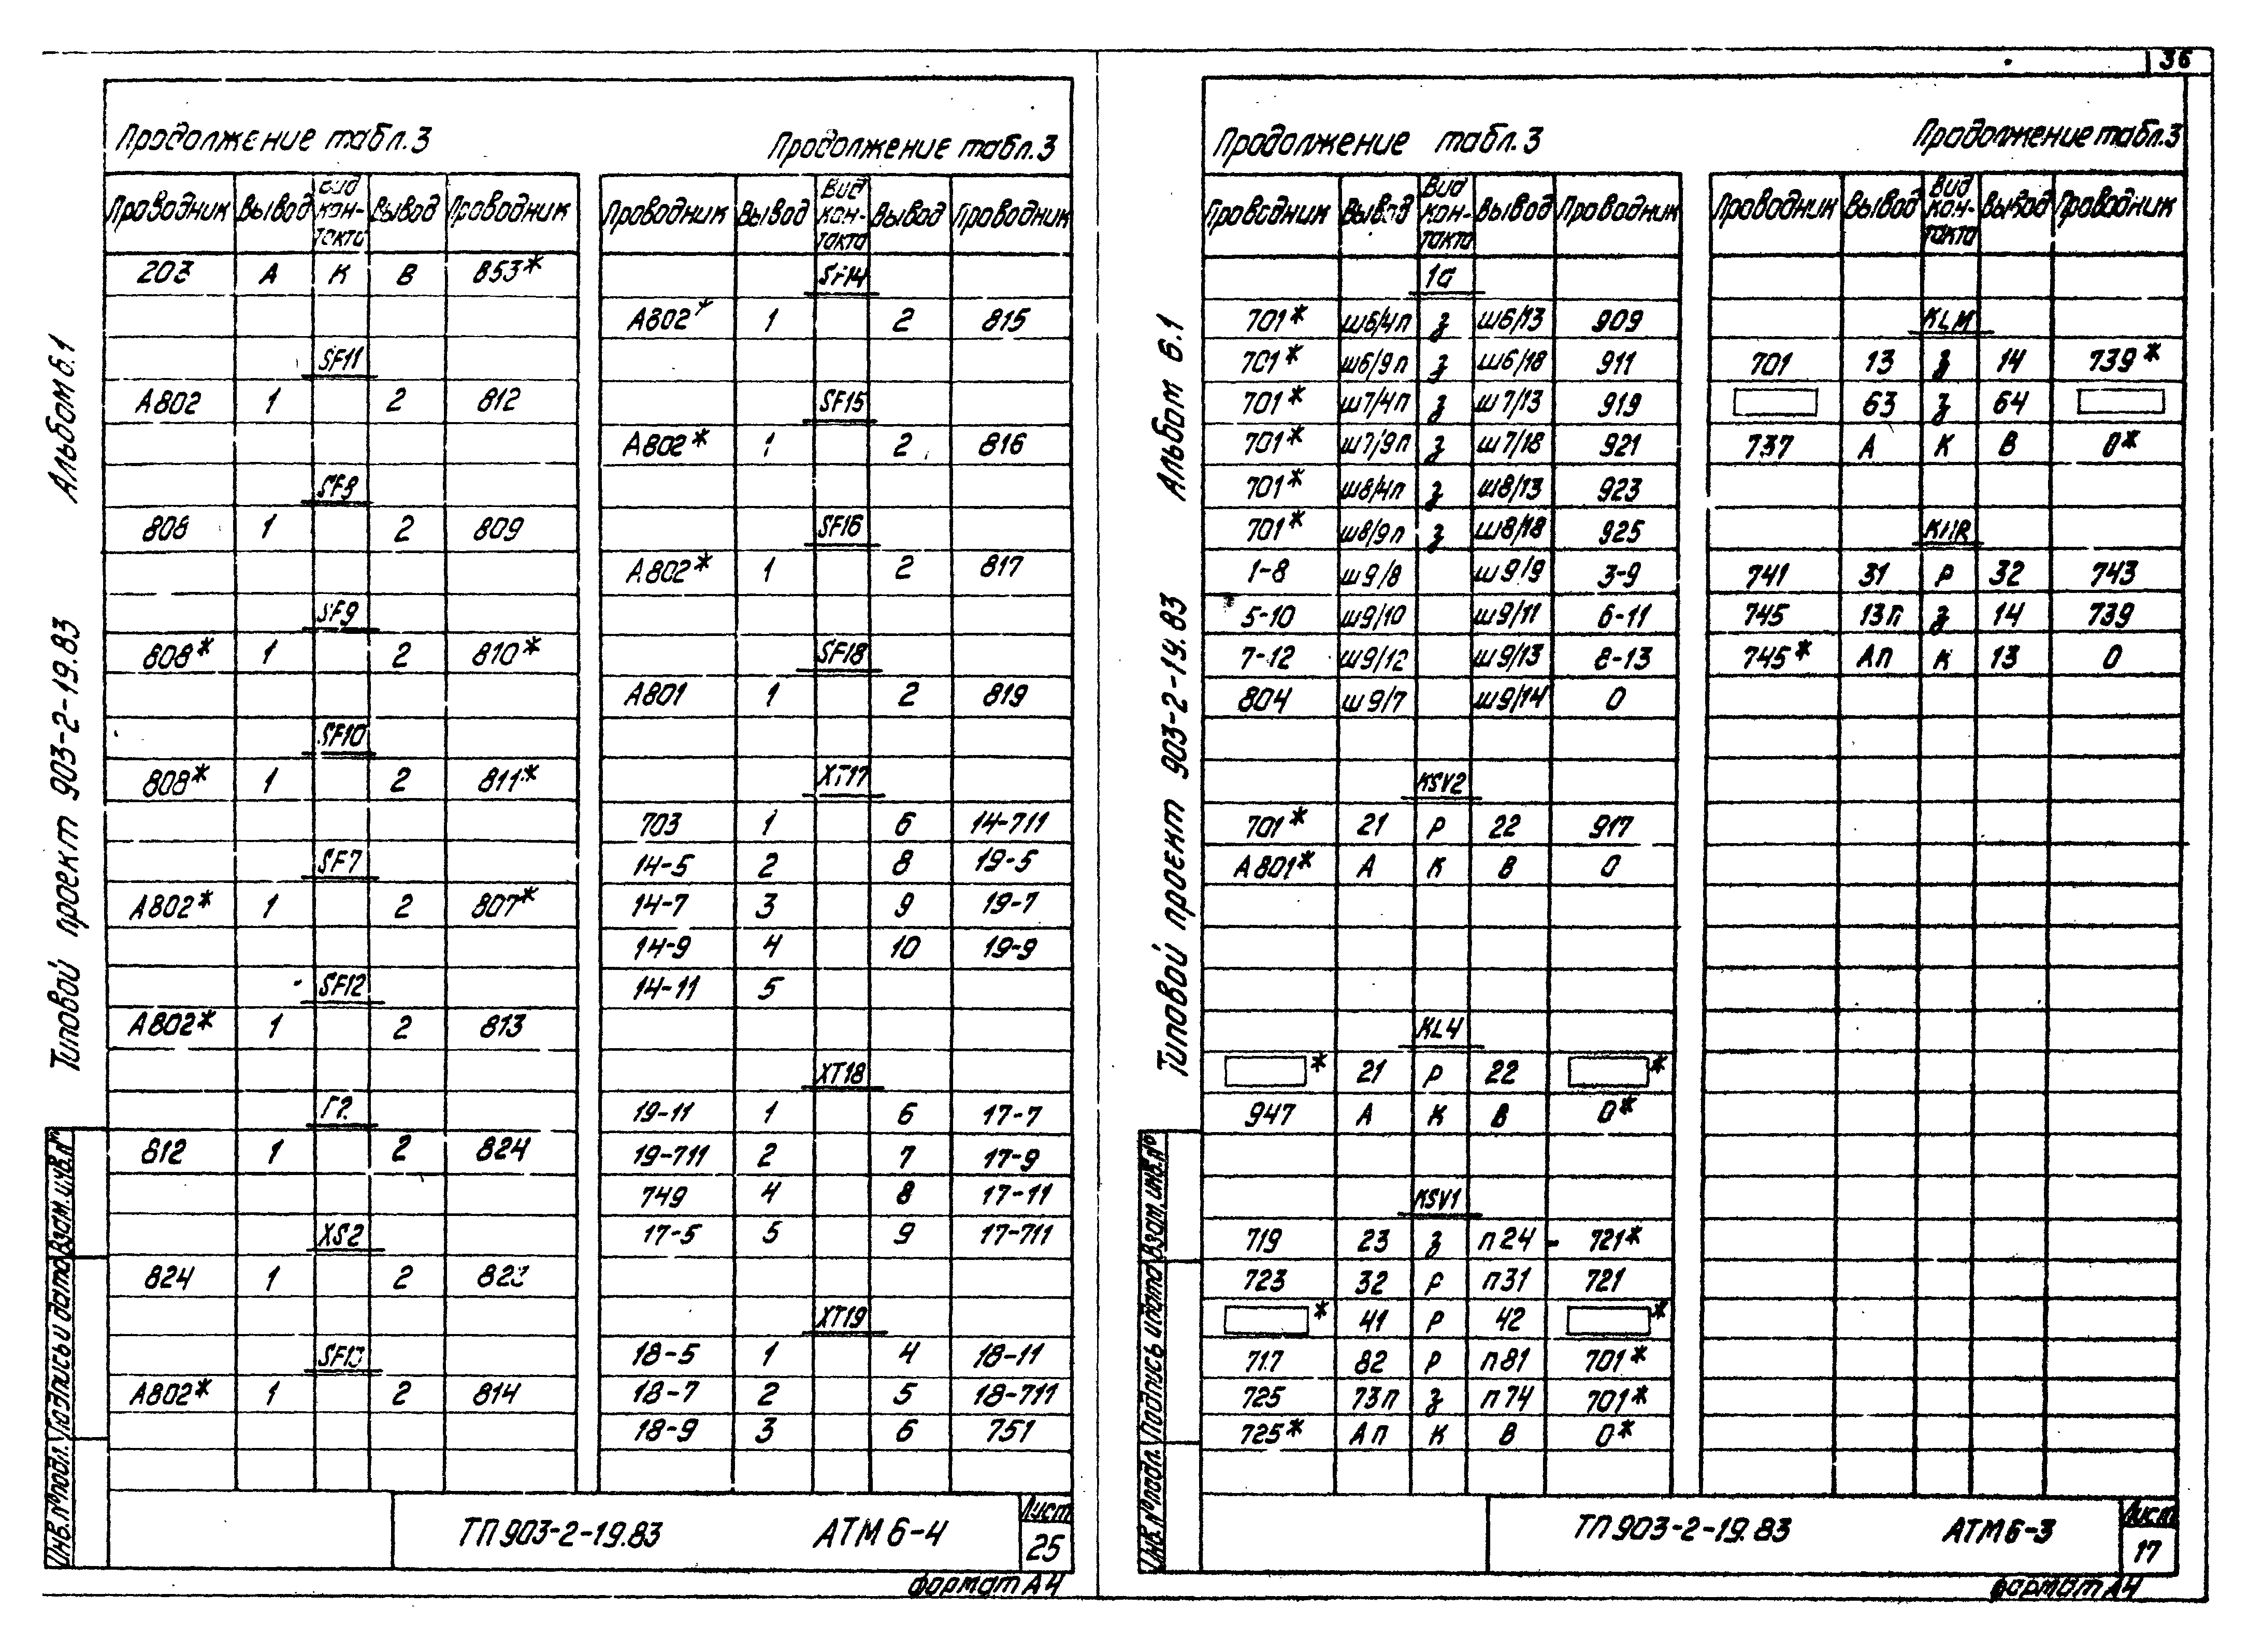 36
Продолжение табл.3
Проводник Вывод Вид кон-такта Вывод Проводник
203 А К В 853*
SF11
А802 1 2 812
SF8
808 1 2 809
SF9
808* 1 2 810*
SF10
808* 1 2 811*
SF7
А802* 1 2 807*
SF12
А802* 1 2 813
812 1 2 824
XS2
824 1 2
SF13
А802* 1 2 814
Продолжение табл.3
Проводник Вывод Вид кон-такта Вывод Проводник
SF14
А802* 1 2 815
SF15
А802* 1 2 816
SF16
А802* 1 2 817
SF18
А801 1 2 819
XT17
703 1 6 14-711
14-5 2 8 19-5
14-7 3 9 19-7
14-9 4 10 19-9
14-11 5
XT18
19-11 1 6 17-7
19-711 2 7 17-9
749 4 8 17-11
17-5 5 9 17-711
XT19
18-5 1 4 18-11
18-7 2 5 18-711
18-9 3 6 751
Альбом 6.1
Типовой проект 903-2-19.83
Инв.№подл. Подпись и дата Взам.инв.№
ТП 903-2-19.83 АТМ 6-4
Лист
25
формат А4
Продолжение табл.3
Проводник Вывод Вид кон-такта Вывод Проводник
1а
701* ш6/4п з ш6/13 909
701* ш6/9п з ш6/18 911
701* ш7/4п з ш7/13 919
701* ш7/9п з ш7/18 921
701* ш8/4п з ш8/13 923
701* ш8/9п з ш8/18 925
1-8 ш9/8 ш9/9 3-9
5-10 ш9/10 ш9/11 6-11
7-12 ш9/12 ш9/13 8-13
804 ш9/7 ш9/14 0
KSV2
701* 21 Р 22 917
А801* А К В 0
KL4
* 21 Р 22 *
947 А К В 0*
KSV1
719 23 з п24 721*
723 32 Р п31 721
* 41 Р 42 *
717 82 Р п81 701*
725 73п з п74 701*
725* Ап К В 0*
Продолжение табл.3
Проводник Вывод Вид кон-такта Вывод Проводник
KLM
701 13 з 14 739*
63 з 64
737 А К В 0*
741 31 Р 32 743
745 13п з 14 739
745* Ап К 13 0
Альбом 6.1
Типовой проект 903-2-19.83
Инв.№подл. Подпись и дата Взам.инв.№
ТП 903-2-19.83 АТМ6-3
Лист
17
формат А4